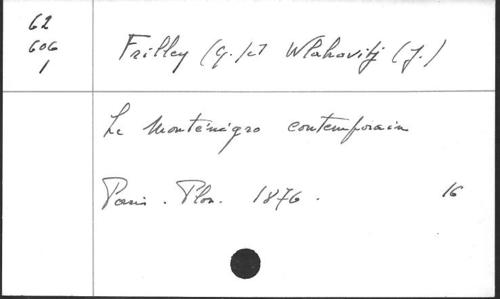 62
606
1
Frilley (G.) et Wlahovitj (J.)
Le Monténégro contemporain
Paris. Plon. 1876. 16